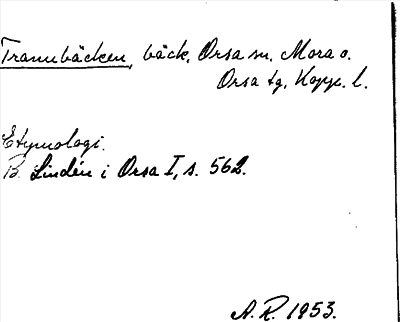 Trannbäcken, bäck, Orsa sn. Mora o.
Orsa tg, Kopp. l.
Etymologi.
B. Lindén i Orsa I, s. 562.
A. R. 1953.